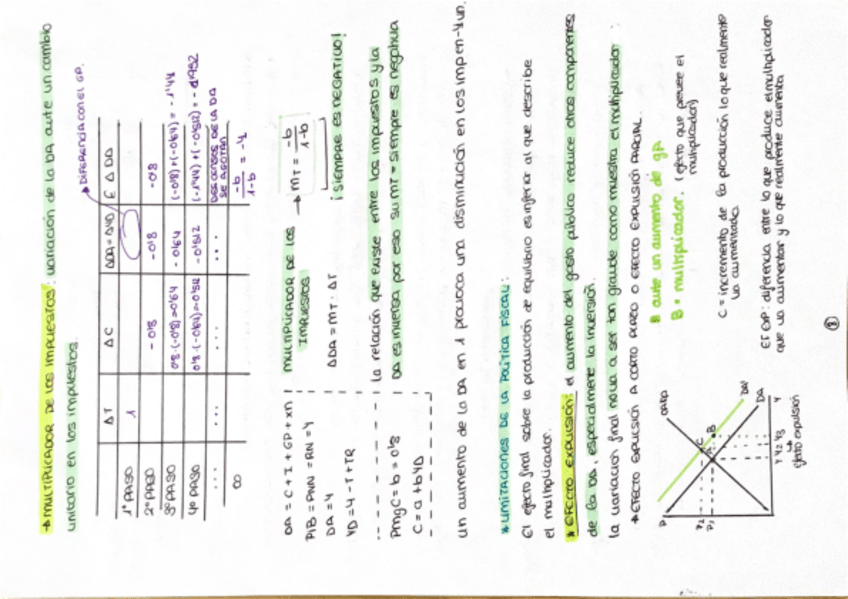 → MULTIPLICADOR DE LOS IMPUESTOS: variación de la DA ante un cambio
unitario en los impuestos.
→ DIFERENCIA CON EL GP.
ΔT ΔC ΔDA = ΔYD E ΔDA
1º PASO 1
2º PASO -0'8 -0'8 -0'8
3º PASO 0'8·(-0'8)=0'64 -0'64 (-0'8)+(-0'64) = -1'44
4º PASO 0'8·(-0'64)=0'512 -0'512 (-1'44)+(-0'512) = -1'952
... ... ... ... DESCENSOS DE LA DA SE AGOTAN
∞ -b/1-b = -4
DA = C + I + GP + XN
PIB = PNN = RN = Y
DA = Y
YD = Y - T + TR
PmgC = b = 0'8
C = a + bYD
MULTIPLICADOR DE LOS IMPUESTOS → mT = -b/1-b
ΔDA = mT · ΔT ¡SIEMPRE ES NEGATIVO!
la relación que existe entre los impuestos y la
DA es inversa por eso su mT = siempre es negativa
un aumento de la DA en 1 provoca una disminución en los impen-4un.
* LIMITACIONES DE LA POLÍTICA FISCAL:
El efecto final sobre la producción de equilibrio es inferior al que describe
el multiplicador.
* EFECTO EXPULSIÓN: el aumento del gasto público reduce otros componentes
de la DA, especialmente la inversión.
la variación final no va a ser tan grande como muestra el multiplicador:
* EFECTO EXPULSIÓN A CORTO PLAZO O EFECTO EXPULSIÓN PARCIAL.
P
OACP
DA'
DA
P2
P1
A
B
C
Y Y2 Y3
Y
efecto expulsión
ante un aumento de GP
B = multiplicador. (efecto que prevee el
multiplicador)
C = incremento de la producción lo que realmente
ha aumentado.
EF EXP: diferencia entre lo que produce el multiplicador
que va aumentar y lo que realmente aumenta
8